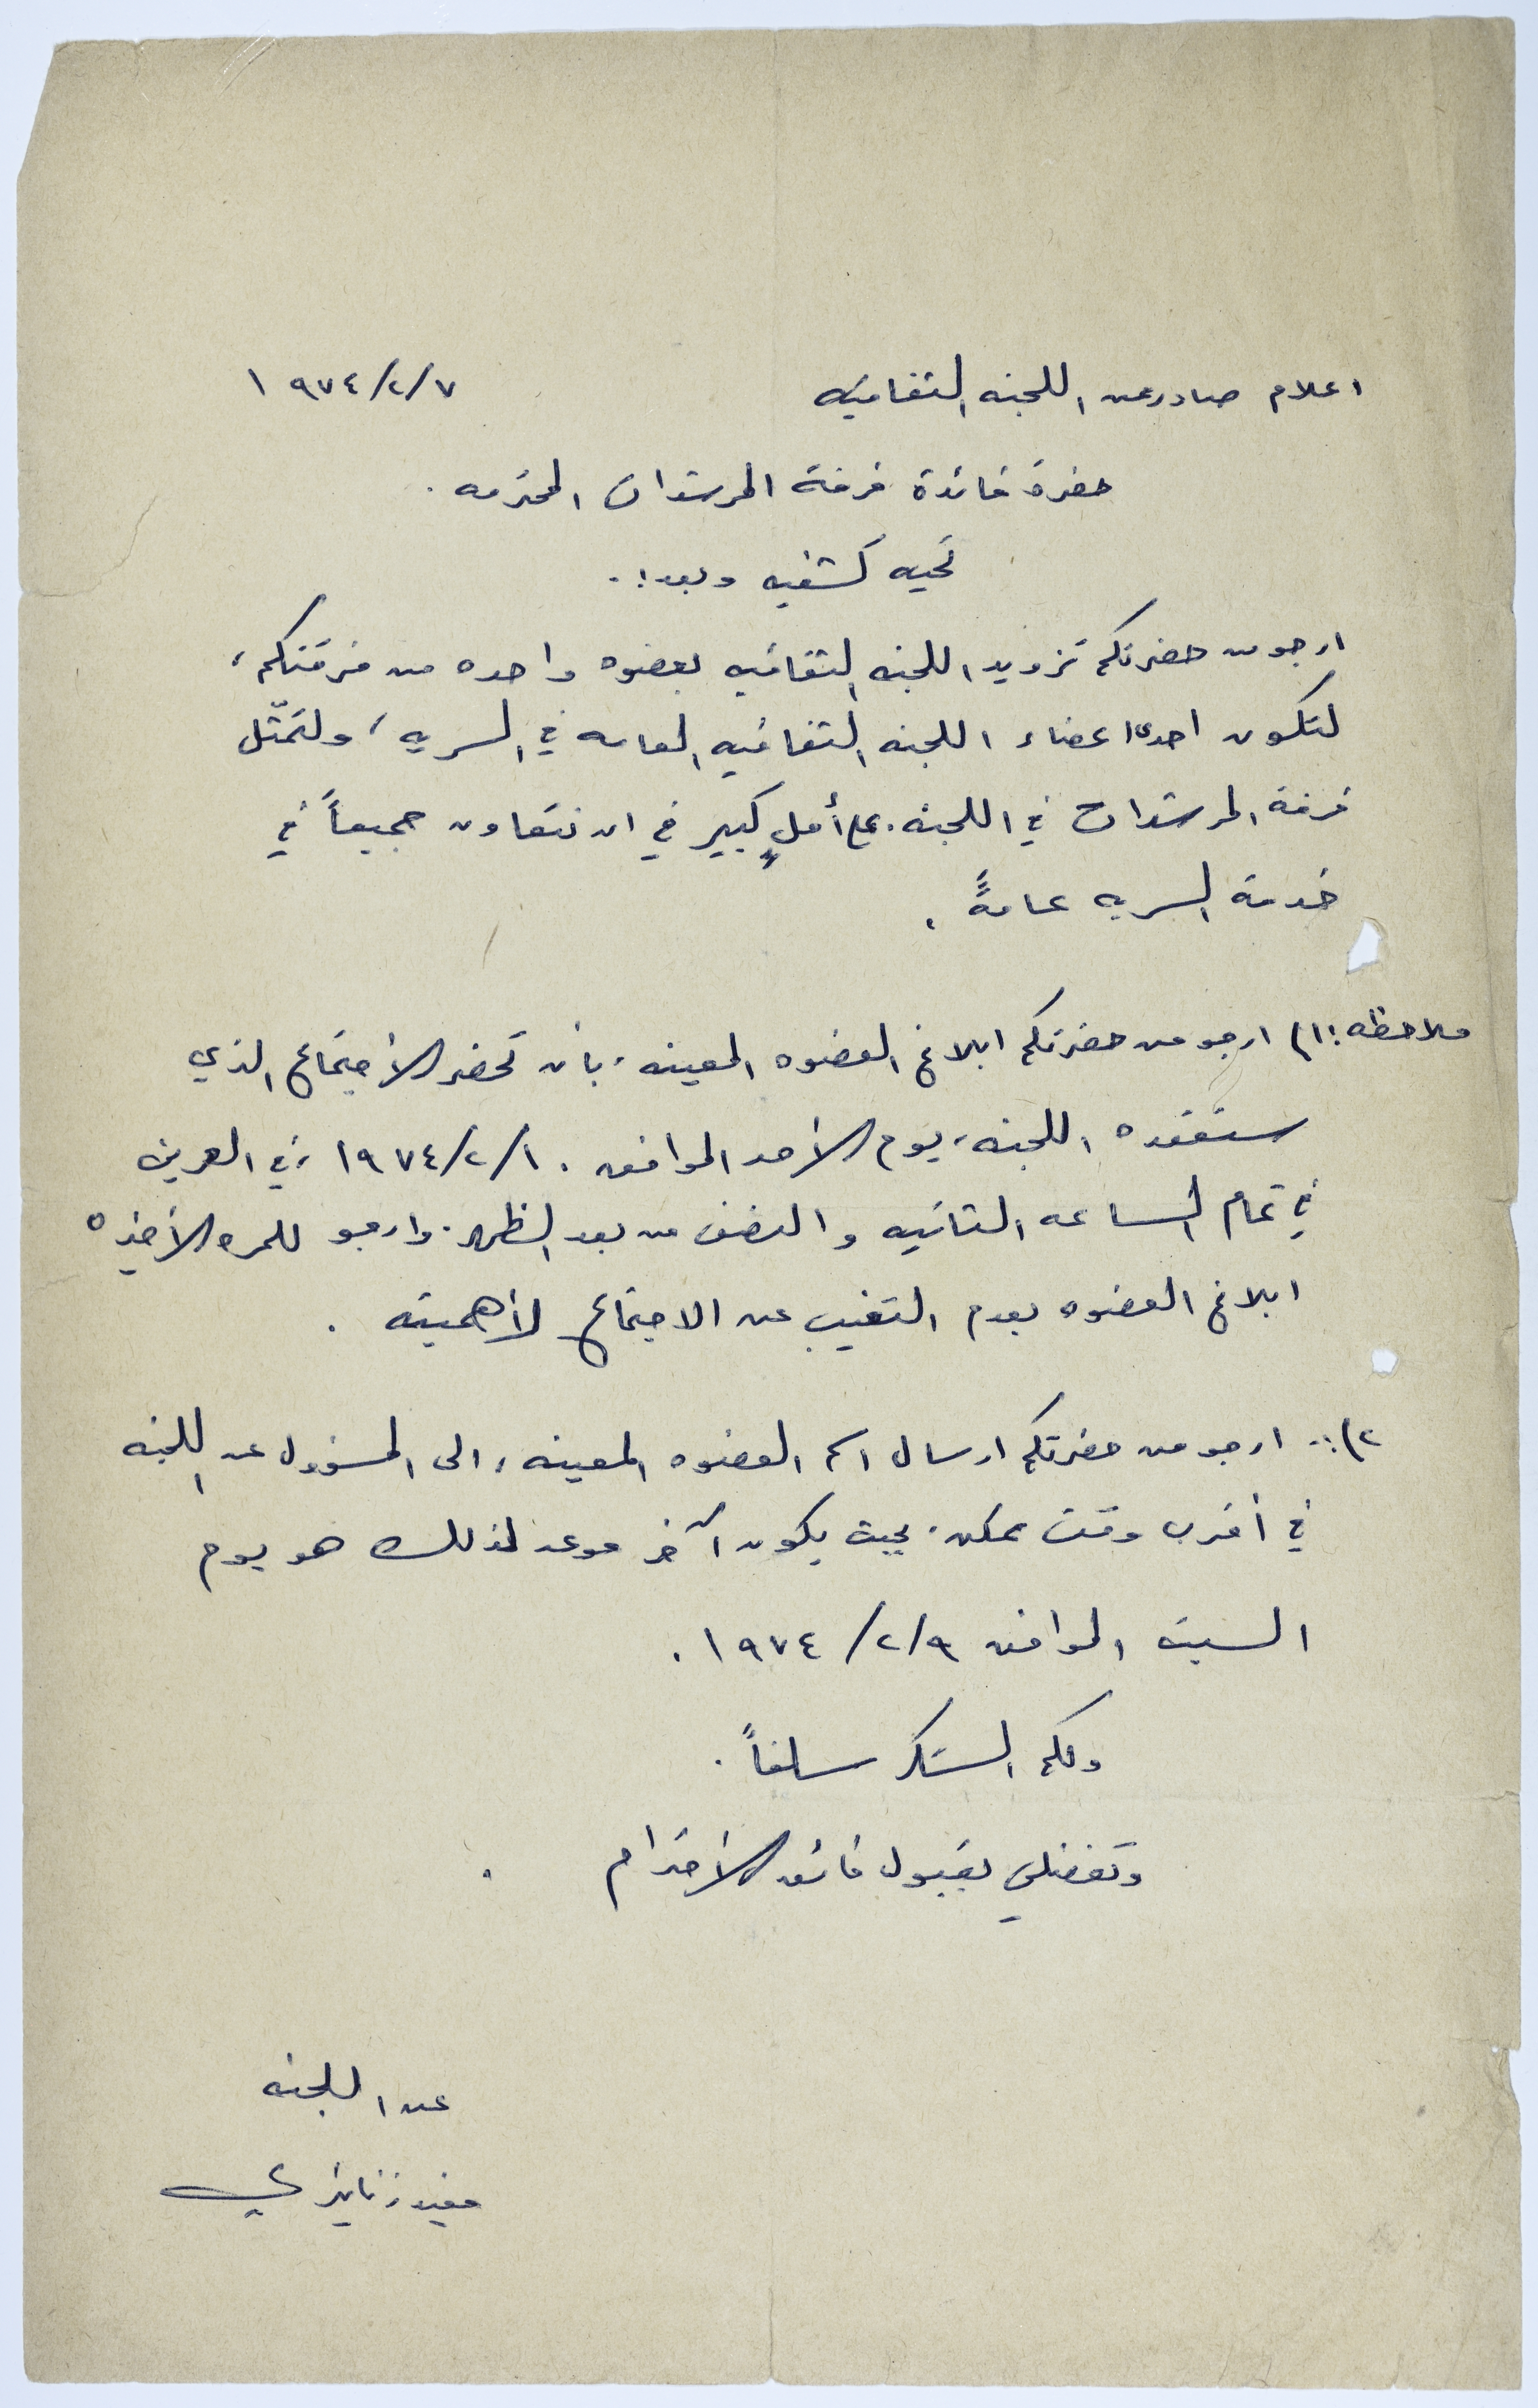 اعلام صادر عن اللجنه الثقافيه ١٩٧٤/٢/٧
حضرة قائدة فرقة المرشدات المحترمه .
تحيه كشفيه وبعد :.
ارجو من حضرتكم تزويد اللجنه الثقافيه بعضوه واحده من فرقتكم ،
لتكون احدى اعضاء اللجنه الثقافيه العامه في السريه ، ولتمثّل
فرقة المرشدات في اللجنه . على أملٍ كبير في ان نتعاون جميعاً في
خدمة السريه عامةً .
ملاحظه : ١) ارجو من حضرتكم ابلاغ العضوه المعينه ، بأن تحضر الأجتماع الذي
ستعقده اللجنه ، يوم الأحد الموافق ١٩٧٤/٢/١٠ ، في العرين
في تمام الساعه الثانيه والنصف من بعد الظهر . وارجو للمره الأخيره
ابلاغ العضوه بعدم التغيب عن الاجتماع لأهميته .
٢) :. ارجو من حضرتكم ارسال اسم العضوه المعينه ، الى المسؤول عن اللجنه
في أقرب وقت ممكن . بحيث يكون آخر موعد لذلك هو يوم
السبت الموافق ١٩٧٤/٢/٩ .
ولكم الشكر سلفاً .
وتفضلي بقبول فائق الأحترام .
عن اللجنه
مفيد